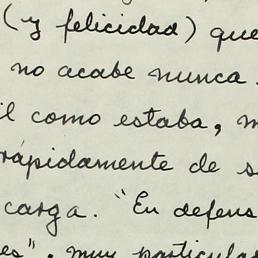 (y felicidad) que
no acabe nunca.
il como estaba, m
rápidamente de s
carga. "En defens
es", muy particular